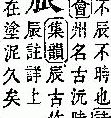 不辰不時也
會州名古沅
集韻辰古
辰註詳上
在塗泥久矣